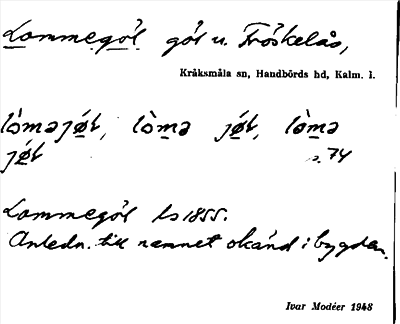 Lommegöl göl u. Fröskelås,
Kråksmåla sn, Handbörds hd, Kalm. l.
lòməjǿl, lòmə jǿl, lòmə
jǿl s. 74
Lommegöl ls 1855.
Anledn. till namnet okänd i bygden.
Ivar Modéer 1948